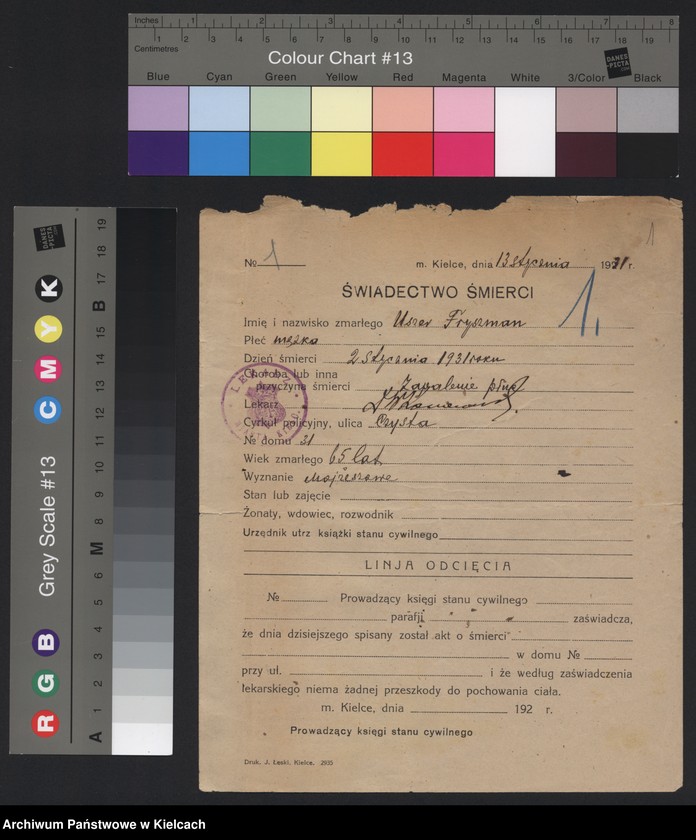 Inches 1 2 3 4 5 6 7 8
Centimetres 1 2 3 4 5 6 7 8 9 10 11 12 13 14 15 16 17 18 19
Colour Chart #13
DANES-PICTA .COM
Blue Cyan Green Yellow Red Magenta White 3/Color Black
R G B Grey Scale #13 C M Y K
DANES-PICTA .COM
A 1 2 3 4 5 6 M 8 9 10 11 12 13 14 15 B 17 18 19
1
№ 1 m. Kielce, dnia 13 stycznia 1931 r.
ŚWIADECTWO ŚMIERCI
1.
Imię i nazwisko zmarłego Uszer Fryszman
Płeć męska
Dzień śmierci 2 Stycznia 1931 roku
Choroba lub inna
przyczyna śmierci Zapalenie płuc
LEKARZ
Lekarz
Cyrkuł policyjny, ulica Czysta
№ domu 31
Wiek zmarłego 65 lat
Wyznanie Mojżeszowe
Stan lub zajęcie
Żonaty, wdowiec, rozwodnik
Urzędnik utrz książki stanu cywilnego
LINJA ODCIĘCIA
№ Prowadzący księgi stanu cywilnego
parafji zaświadcza,
że dnia dzisiejszego spisany został akt o śmierci
w domu №
przy ul. i że według zaświadczenia
lekarskiego niema żadnej przeszkody do pochowania ciała.
m. Kielce, dnia 192 r.
Prowadzący księgi stanu cywilnego
Druk. J. Łaski, Kielce. 2935
Archiwum Państwowe w Kielcach